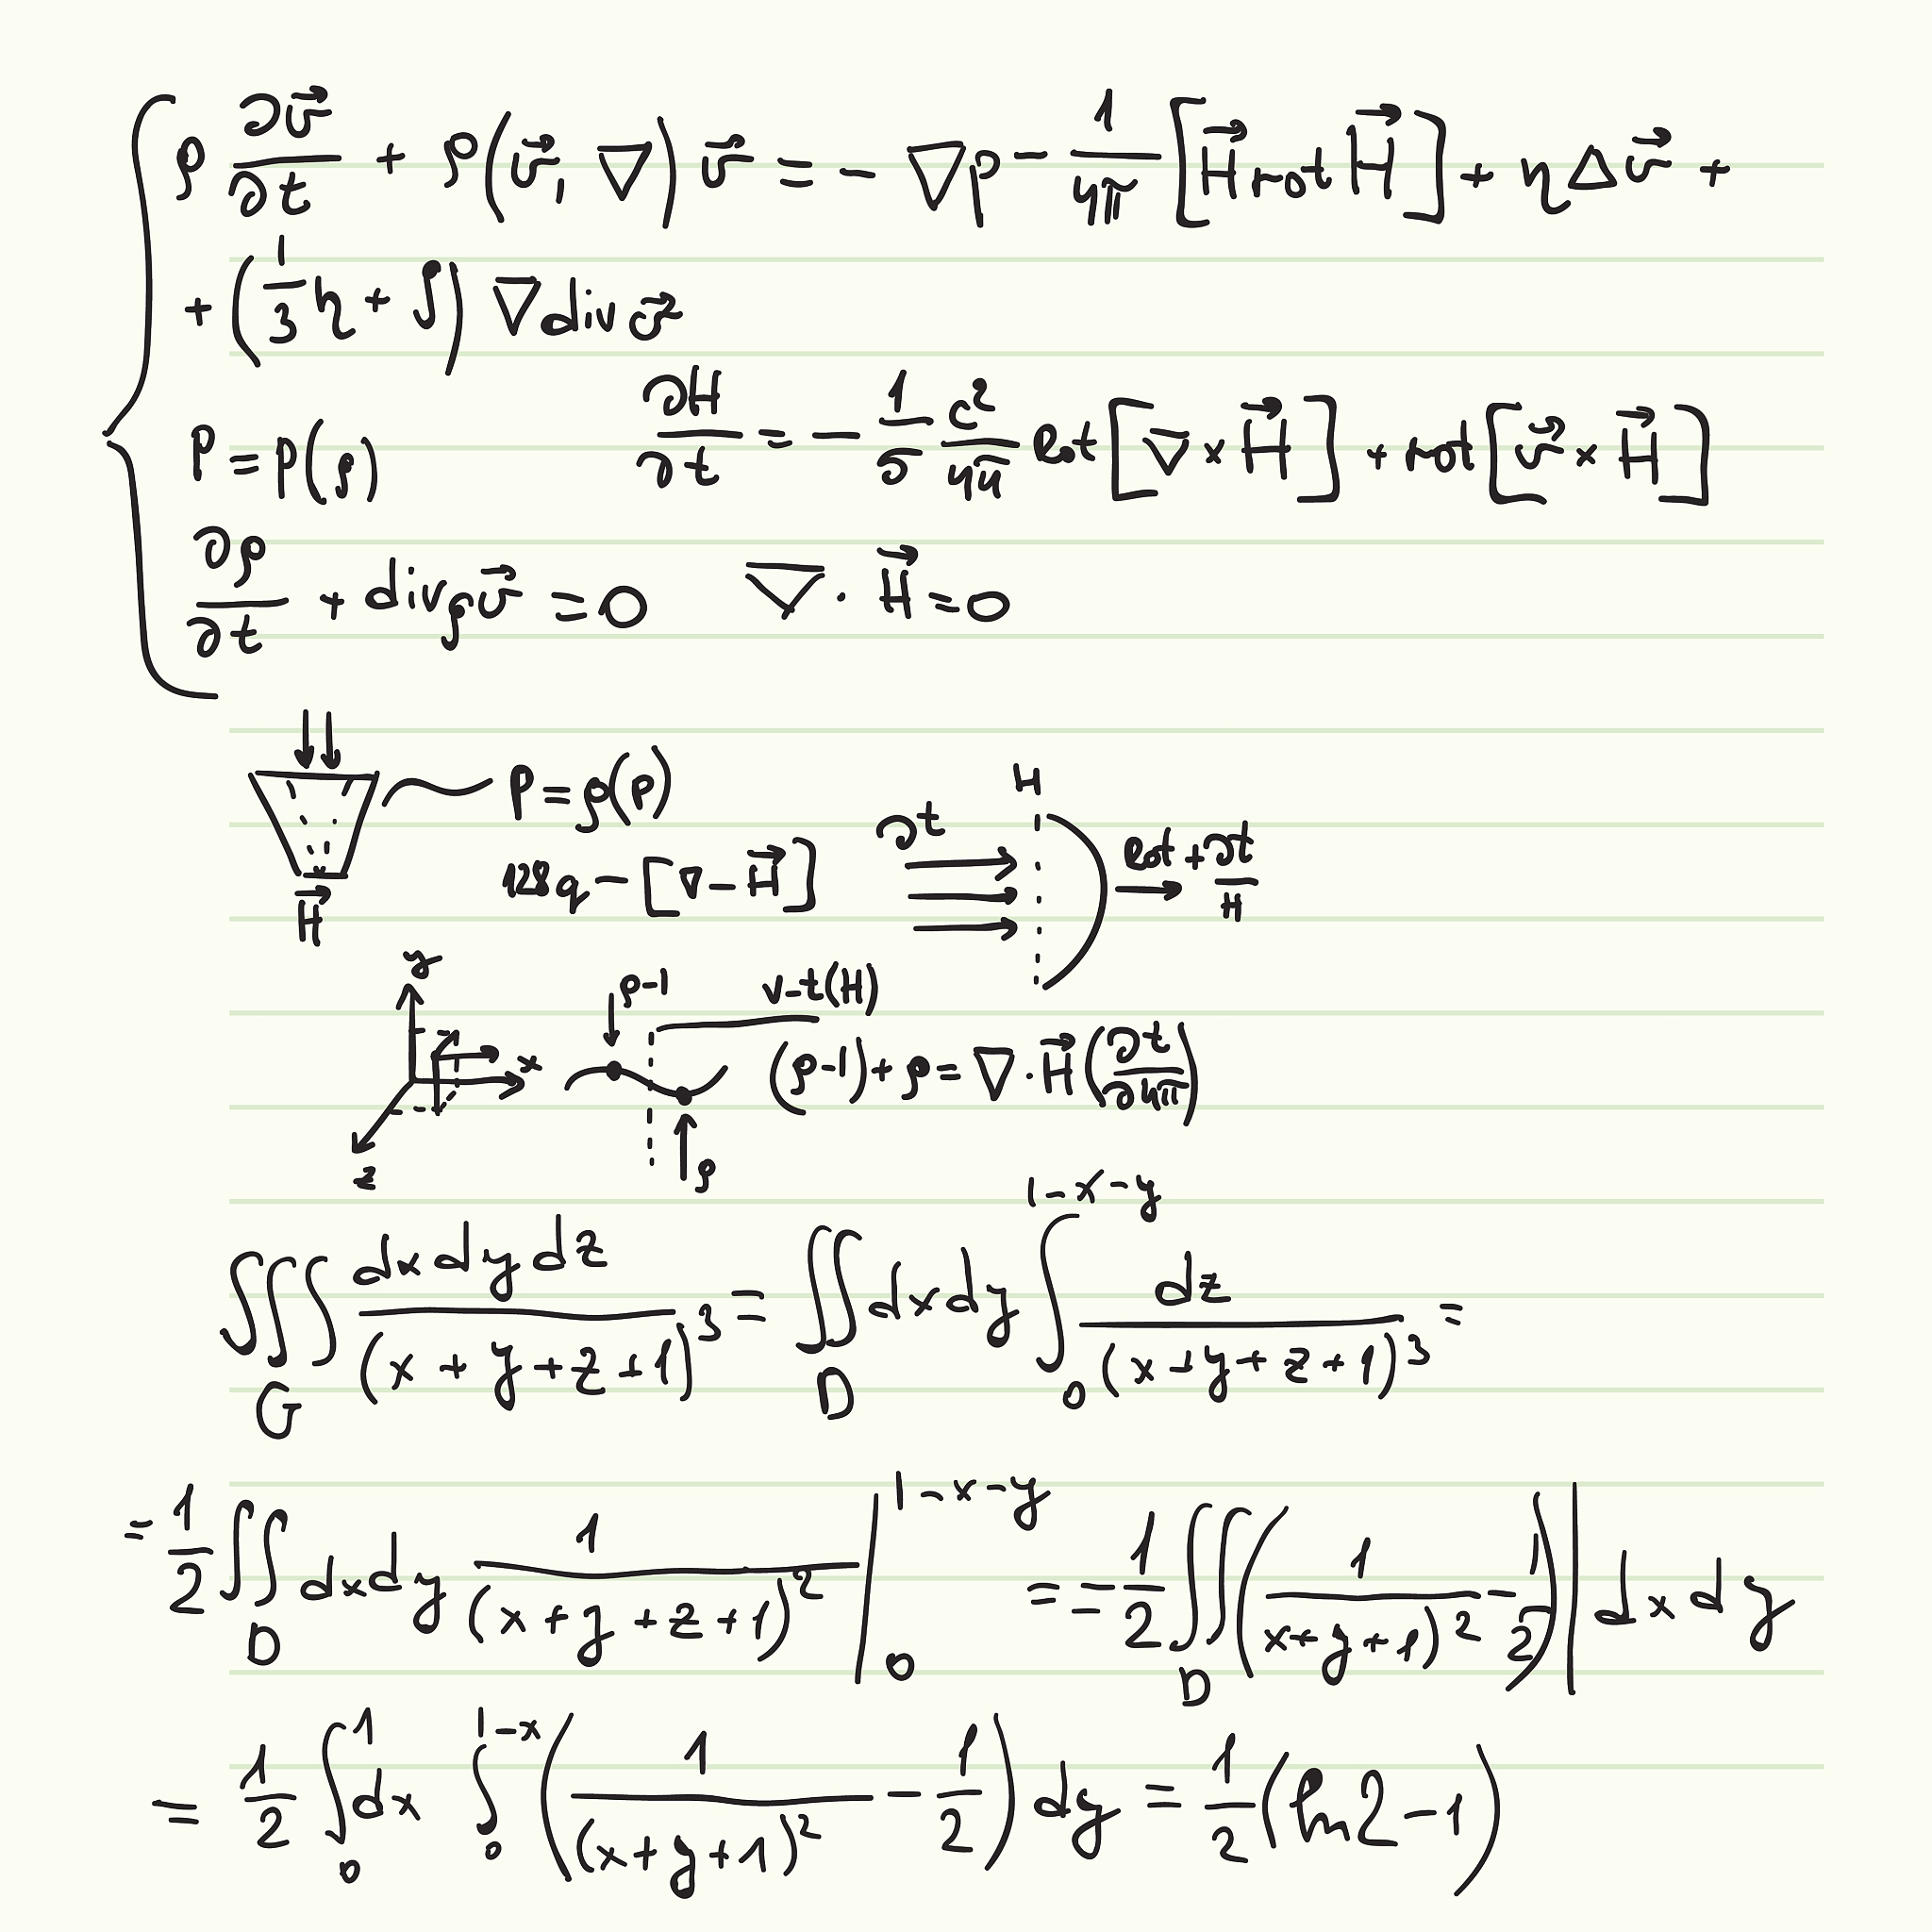 ρ ∂v⃗/∂t + ρ(v⃗, ∇) v⃗ = - ∇p - 1/4π [H⃗ rot H⃗] + η Δ v⃗ +
+ (1/3 η + ∫) ∇ div v⃗
P = p(ρ)    ∂H/∂t = - 1/σ c²/4π Rot [∇ × H⃗] + rot [v⃗ × H⃗]
∂ρ/∂t + div ρv⃗ = 0    ∇ · H⃗ = 0
P = ρ(p)
H
128q - [∇ - H⃗]
∂t
Rot + ∂t/H
H⃗
y
x
z
ρ-1
v-t(H)
(ρ-1) + ρ = ∇ · H⃗ (∂t/∂4π)
ρ
∫∫∫_G dxdydz/(x + y + z + 1)³ = ∫∫_D dxdy ∫_0^{1-x-y} dz/(x + y + z + 1)³ =
= 1/2 ∫∫_D dxdy 1/(x + y + z + 1)² |_0^{1-x-y} = - 1/2 ∫∫_D (1/x+y+1)² - 1/2)| dxdy
= 1/2 ∫_0^1 dx ∫_0^{1-x} (1/(x+y+1)² - 1/2) dy = 1/2 (ln2 - 1)